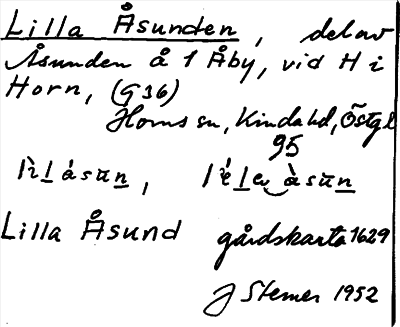 Lilla Åsunden, del av
Åsunden å 1 Åby, vid H i
Horn, (G 36)
Horns sn, Kinda hd, Östgl
95
lìl̲ ásūn̲, lél̲e‿àsūn̲
Lilla Åsund gårdskarta 1629
J Stemer 1952